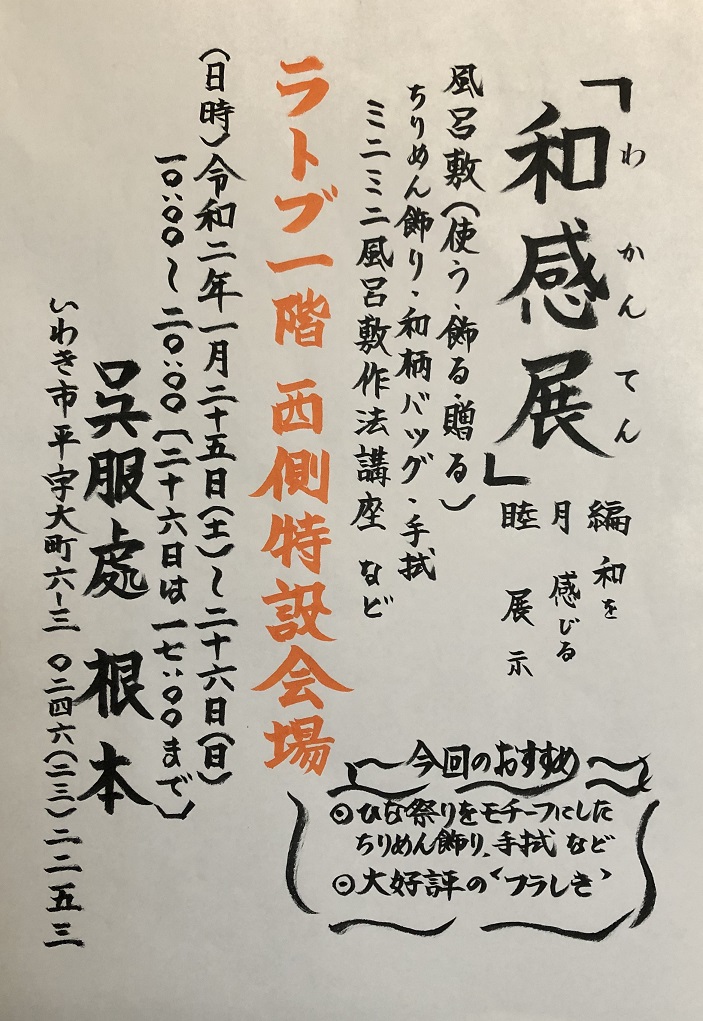 「和感展」
わかんてん
睦月編
和を
感じる
展示
風呂敷(使う・飾る・贈る)
ちりめん飾り・和柄バッグ・手拭
ミニミニ風呂敷作法講座 など
ラトブ一階 西側特設会場
(日時)令和二年一月二十五日(土)~二十六日(日)
一〇:〇〇~二〇:〇〇〔二十六日は一七:〇〇まで〕
呉服處 根本
いわき市平字大町六-三 〇二四六(二三)二二五三
今回のおすすめ
◎ひな祭りをモチーフにした
ちりめん飾り、手拭など
◎大好評の“フラしき”